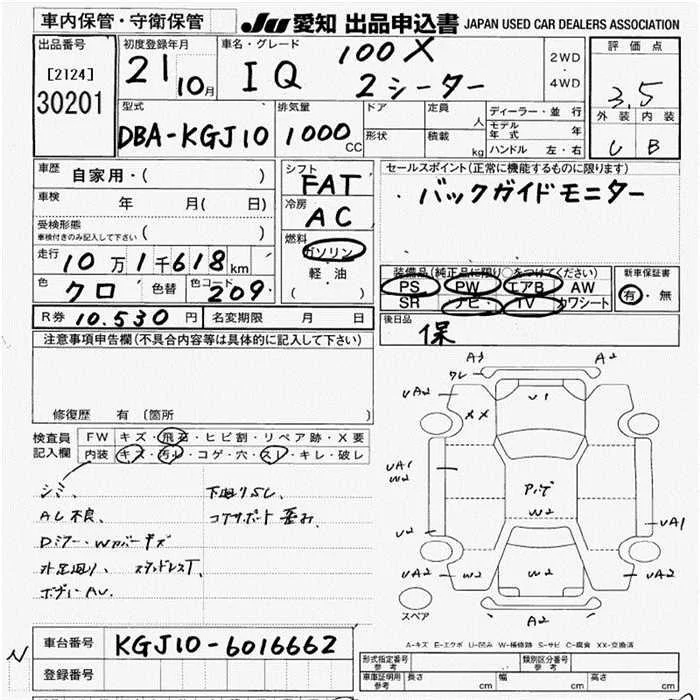 車内保管・守衛保管 JU 愛知 出品申込書 JAPAN USED CAR DEALERS ASSOCIATION
出品番号 初度登録年月 車名・グレード 評価点
[2124] 21 10月 IQ 100X 2WD・4WD
30201 2シーター 3.5
型式 排気量 ドア 定員 人 ディーラー・並行 外装 内装
DBA-KGJ10 1000CC 形状 積載 kg モデル年式 年 C B
ハンドル 左・右
車歴 自家用・( ) シフト FAT セールスポイント(正常に機能するものに限ります)
車検 年 月( 日) 冷房 AC バックガイドモニター
受検形態 ( )
車検付きのみ記入して下さい
走行 10万1千618km 燃料 ガソリン 軽・油 ( )
装備品(純正品に限り○をつけてください) 新車保証書
色 クロ 色替 色コード 209 PS PW エアB AW 有・無
SR ナビ TV カワシート
R券 10,530円 名変期限 月 日 後日品 保
注意事項申告欄(不具合内容等は具体的に記入して下さい)
修復歴 有 〔箇所
検査員 FW キズ・飛石・ヒビ割・リペア跡・X要
記入欄 内装 キズ・汚レ・コゲ・穴・スレ・キレ・破レ
シミ、 下廻りSし、
AL不良、 コアサポート歪み
Dミラー・Wカバーキズ
外足廻り、 スタッドレスT、
ボディAU、
A3 ワレ A2
UA2 XX U1
UA1 W2
W2
U2 UA1
UA2 W2 W2 UA2
A2
スペア
A-キズ E-エクボ U-凹み W-補修跡 S-サビ C-腐食 XX-交換済
車台番号 KGJ10-6016662
登録番号
形式指定番号 参考 類別区分番号 参考
車庫証明用 参考 長さ cm 幅 cm 高さ cm